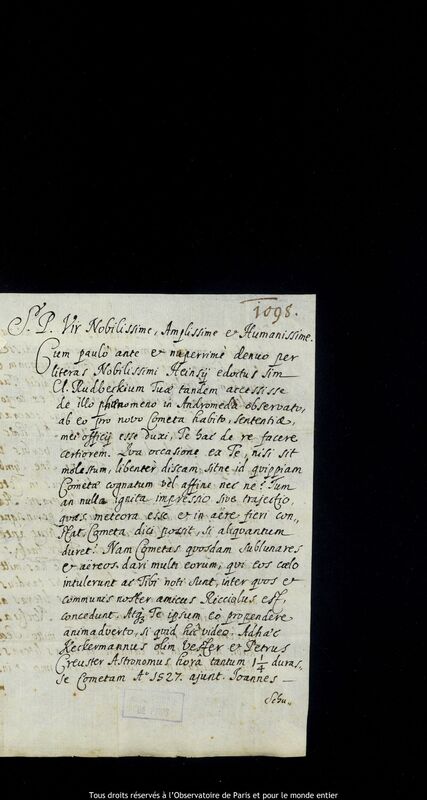 1098.
S. P. Vir Nobilissime, Amplissime et Humanissime.
Cum paulò ante et nuperrimè denuo per
literas Nobilissimi Heinsij edoctus sim
Cl. Rudbeskium Tuæ tandem accessisse
de illo phænomeno in Andromeda observato,
ab eo pro novo Cometa habito, sententiæ,
mei officij esse duxi, Te hac de re facere
certiorem. Qva occasione ex Te, nisi sit
molestum, libenter discam, sitne id qvippiam
Cometæ cognatum vel affine nec ne? Tum
an nulla ignita impressio sive trajectio,
qvas meteora esse et in aëre fieri con„
stat, Cometa dici possit, si aliquantum
duret? Nam Cometas quosdam sublunares
et aëreos dari multi eorum, qvi eos cælo
intulerunt ac Tibi noti sunt, inter quos et
communis noster amicus Ricciolus est,
concedunt. Atq; Te ipsum eò propendere
animadverto, si quid hic video. Adhæc
Keckermannus olim Vester et Petrus
Creuster Astronomus horâ tantum 1 1/4 duras„
se Cometam Aº 1527. ajunt. Joannes
Schu„
Tous droits réservés à l'Observatoire de Paris et pour le monde entier